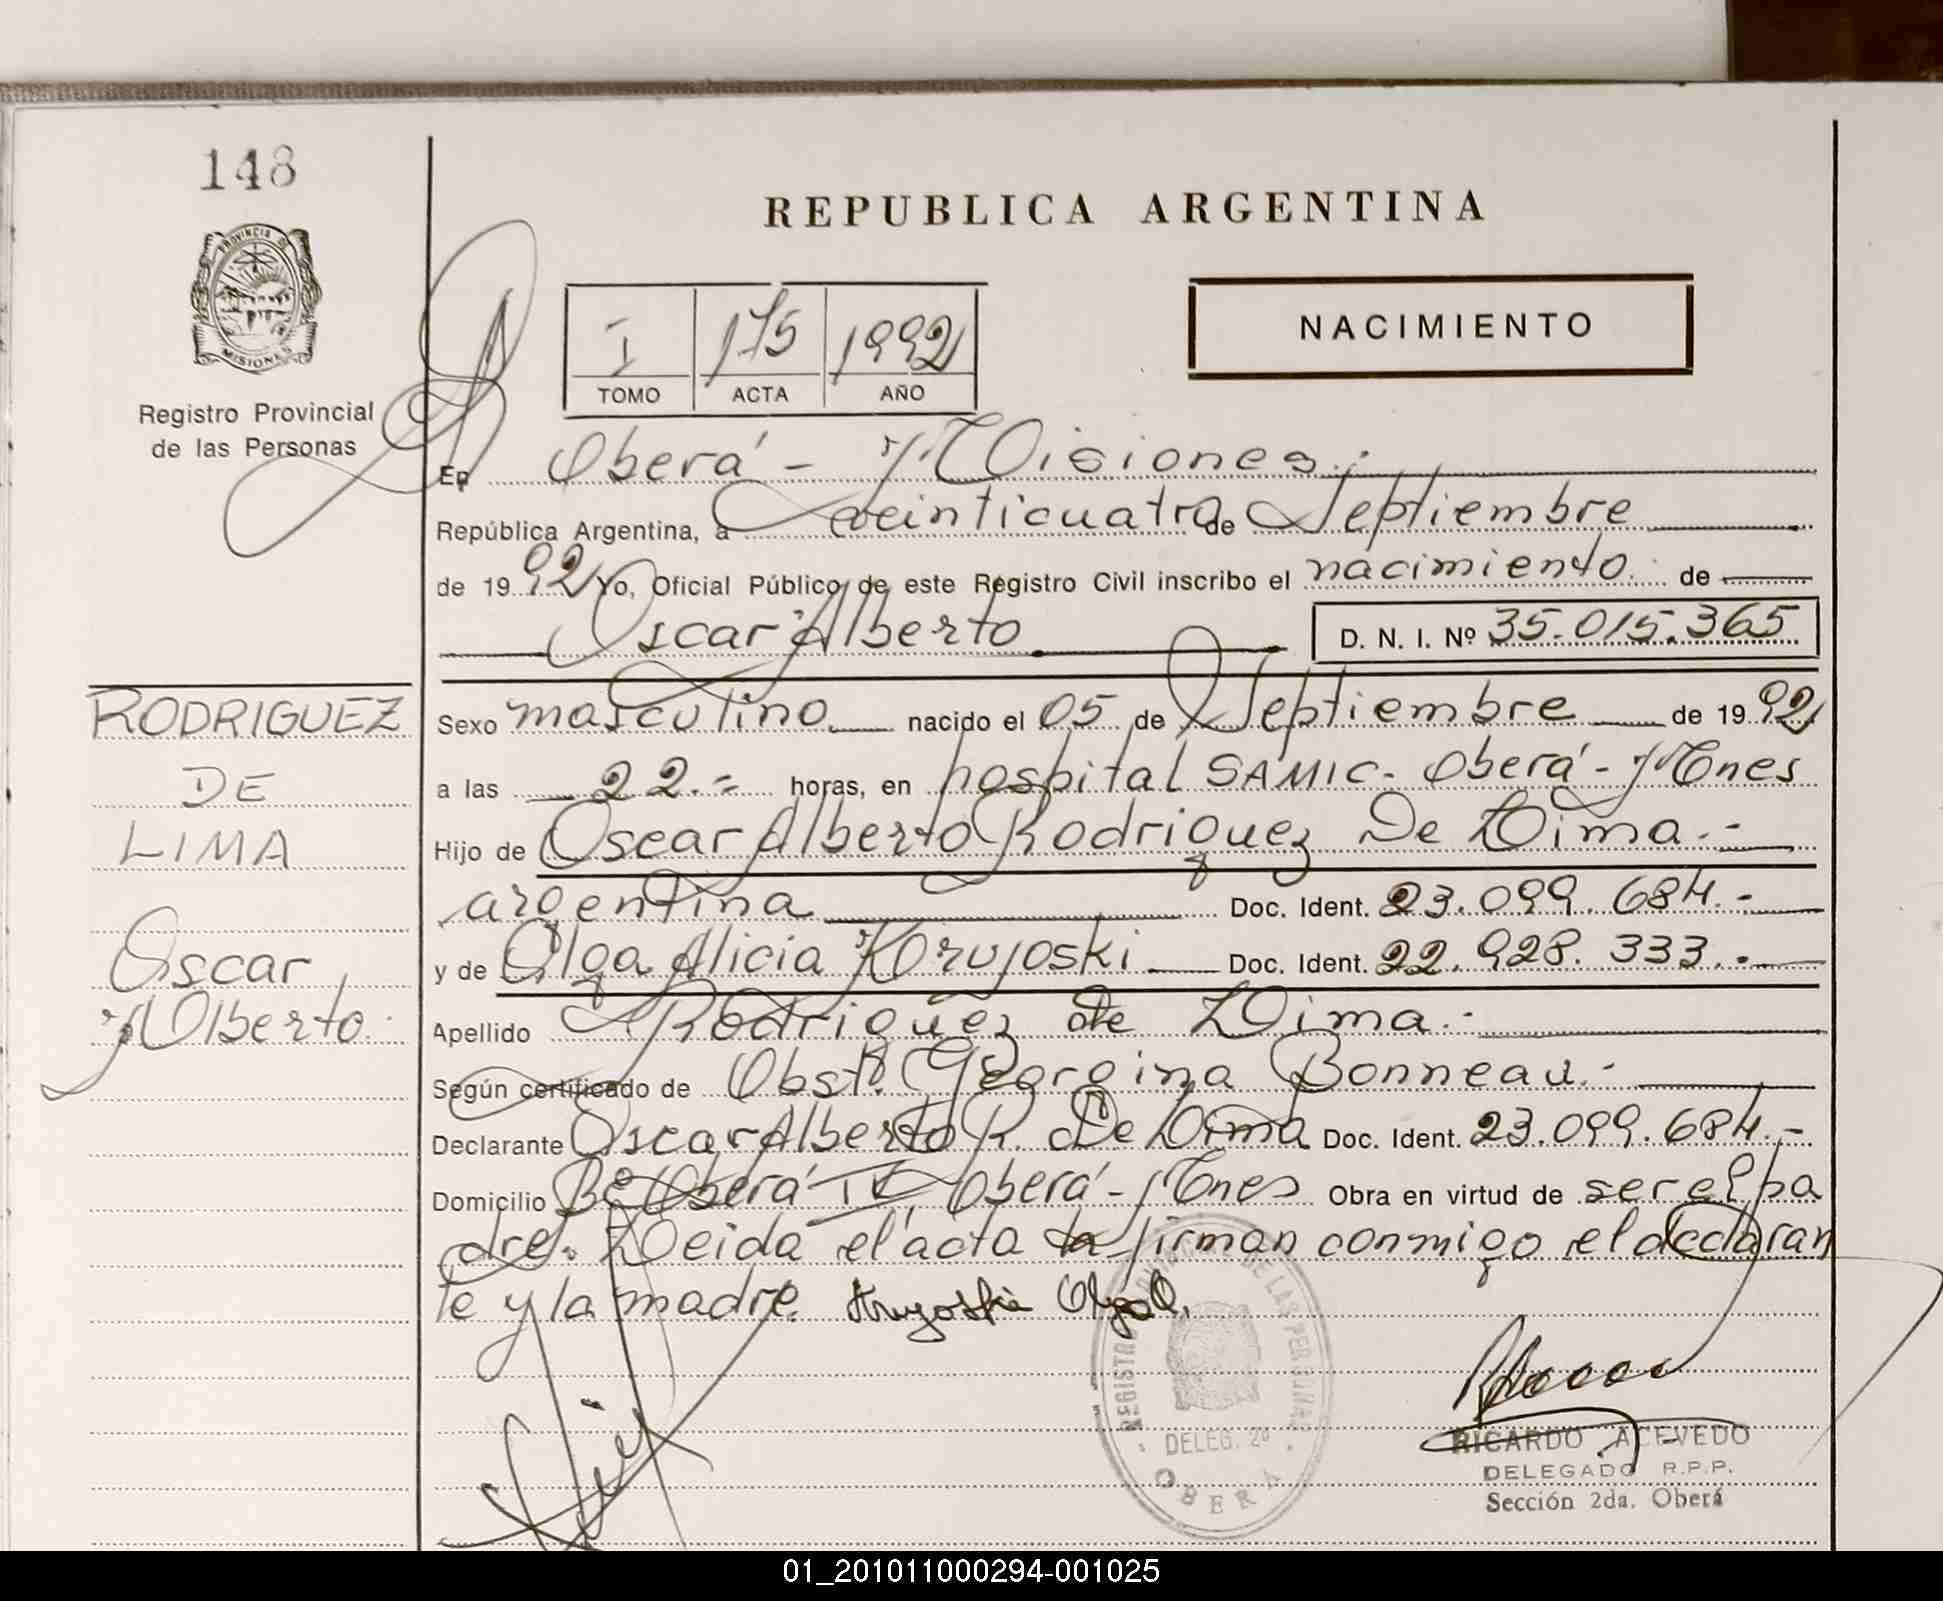 148
PROVINCIA DE
MISIONES
Registro Provincial
de las Personas
REPUBLICA ARGENTINA
I 175 1992
TOMO ACTA AÑO
NACIMIENTO
En Oberá - Misiones.
República Argentina, a veinticuatro de Septiembre
de 1992 Yo, Oficial Público de este Registro Civil inscribo el nacimiento de
Oscar Alberto D. N. I. Nº 35.015.365
RODRIGUEZ
DE
LIMA
Oscar
Alberto.
Sexo masculino nacido el 05 de Septiembre de 1992
a las 22.- horas, en hospital SAMIC - Oberá - Mnes
Hijo de Oscar Alberto Rodriguez De Lima.-
argentina Doc. Ident. 23.099.684.-
y de Olga Alicia Krujoski Doc. Ident. 22.928.333.-
Apellido Rodriguez de Lima.-
Según certificado de Obst. Georgina Bonneau.-
Declarante Oscar Alberto R. De Lima Doc. Ident. 23.099.684.-
Domicilio Bº Oberá IV Oberá - Mnes Obra en virtud de ser el pa
dre. Leida el acta la firman conmigo el declaran
te y la madre. Krujoski Olga A.
REGISTRO DE LAS PERSONAS
DELEG. 2ª
OBERA
RICARDO ACEVEDO
DELEGADO R.P.P.
Sección 2da. Oberá
01_201011000294-001025